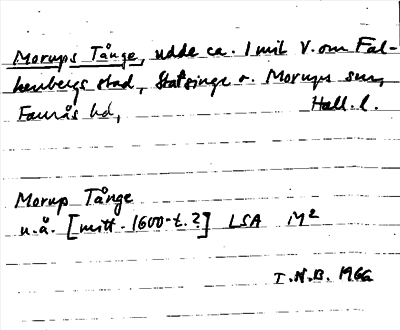 Morups Tånge, udde ca. 1 mil V. om Fal-
kenbergs stad, Stafsinge o. Morups snr,
Faurås hd, Hall. l.
Morup Tånge
u.å. [mitt. 1600-t.?] LSA M²
I.N.B. 1966